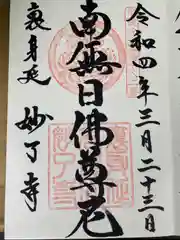 令和四年三月二十三日
南無日佛尊尼
裏身延 妙了寺